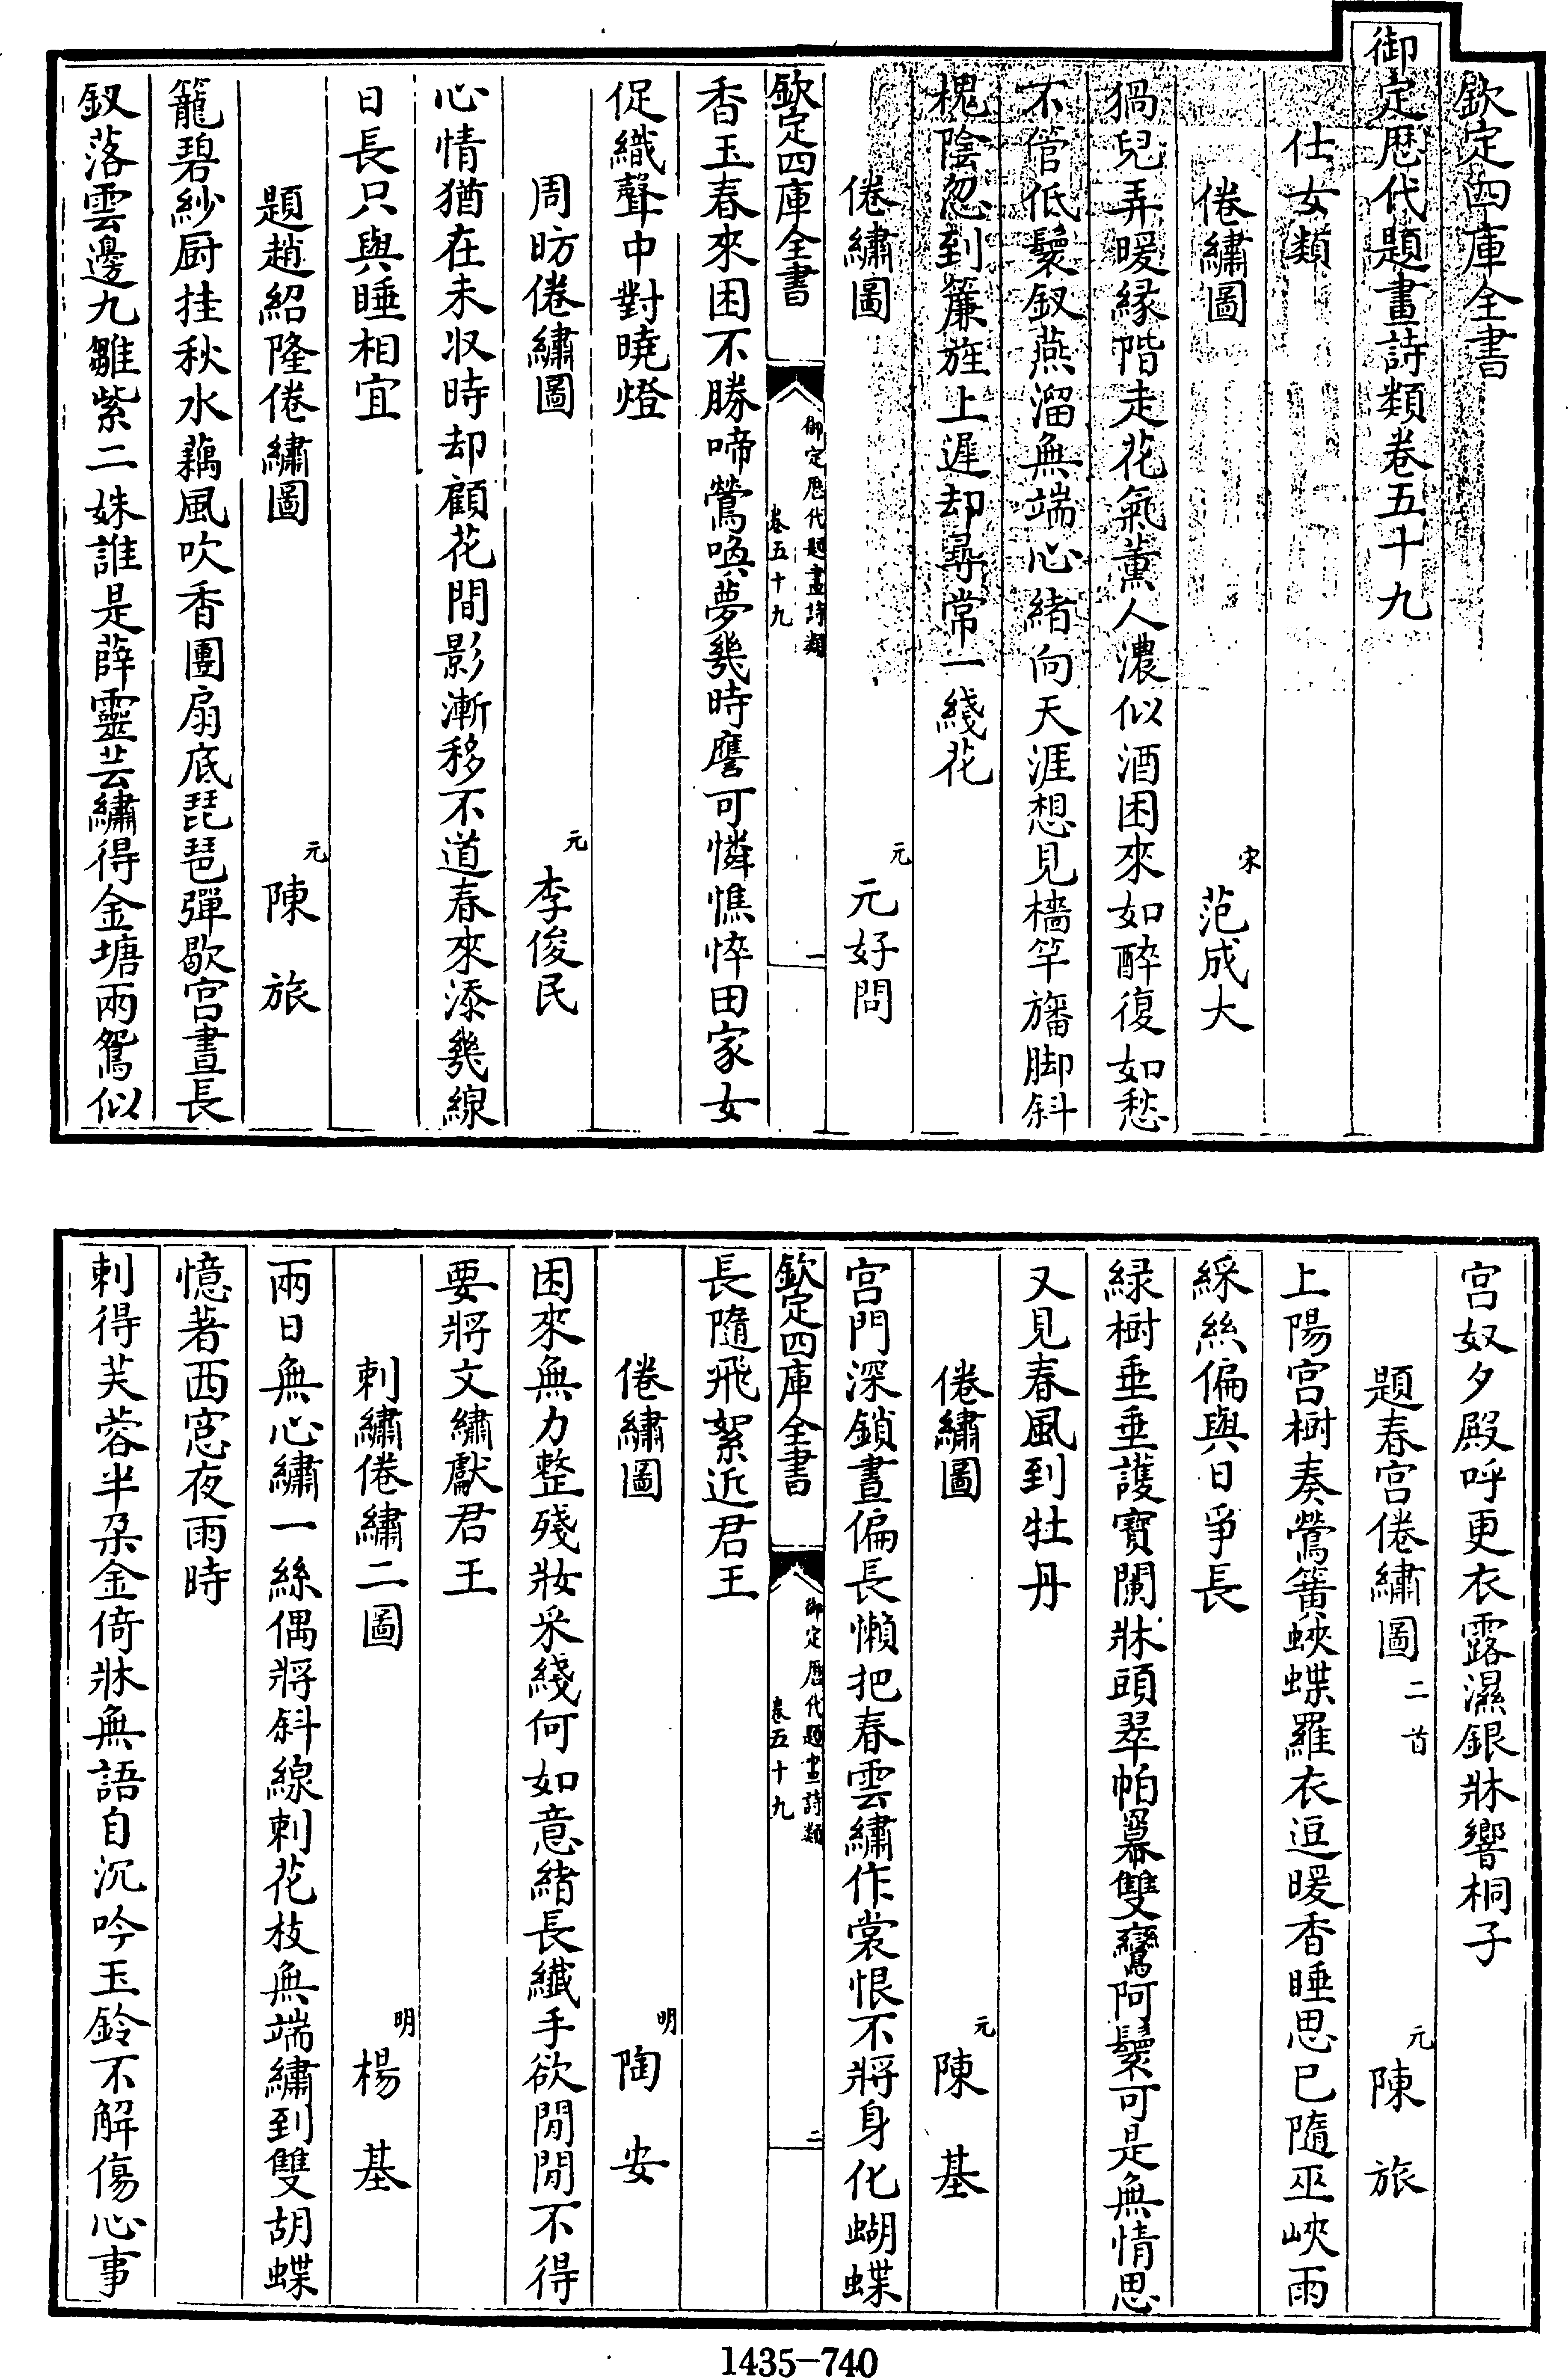 欽定四庫全書
御定歷代題畫詩類卷五十九
仕女類
倦繡圖 宋 范成大
猧兒弄暖緣階走花氣薰人濃似酒困來如醉復如愁
不管低鬟釵燕溜無端心緒向天涯想見檣竿旛脚斜
槐陰忽到簾旌上遲却尋常一綫花
倦繡圖 元 元好問
欽定四庫全書 御定歷代題畫詩類 卷五十九 一
香玉春來困不勝啼鶯喚夢幾時譍可憐憔悴田家女
促織聲中對曉燈
周昉倦繡圖 元 李俊民
心情猶在未收時却顧花間影漸移不道春來添幾線
日長只與睡相宜
題趙紹隆倦繡圖 元 陳旅
籠碧紗厨挂秋水藕風吹香團扇底琵琶彈歇宮晝長
釵落雲邊九雛紫二姝誰是薛靈芸繡得金塘兩鴛似
宮奴夕殿呼更衣露濕銀牀響桐子
題春宮倦繡圖 二首 元 陳旅
上陽宮樹奏鶯簧蛺蝶羅衣逗暖香睡思已隨巫峽雨
綵絲偏與日爭長
緑樹垂垂護寶闌牀頭翠帕羃雙鸞阿鬟可是無情思
又見春風到牡丹
倦繡圖 元 陳基
宮門深鎖晝偏長懶把春雲繡作裳恨不將身化蝴蝶
欽定四庫全書 御定歷代題畫詩類 卷五十九 二
長隨飛絮近君王
倦繡圖 明 陶安
困來無力整殘妝采綫何如意緒長纖手欲閒閒不得
要將文繡獻君王
刺繡倦繡二圖 明 楊基
兩日無心繡一絲偶將斜線刺花枝無端繡到雙胡蝶
憶著西窓夜雨時
刺得芙蓉半朶金倚牀無語自沉吟玉鈴不解傷心事
1435-740